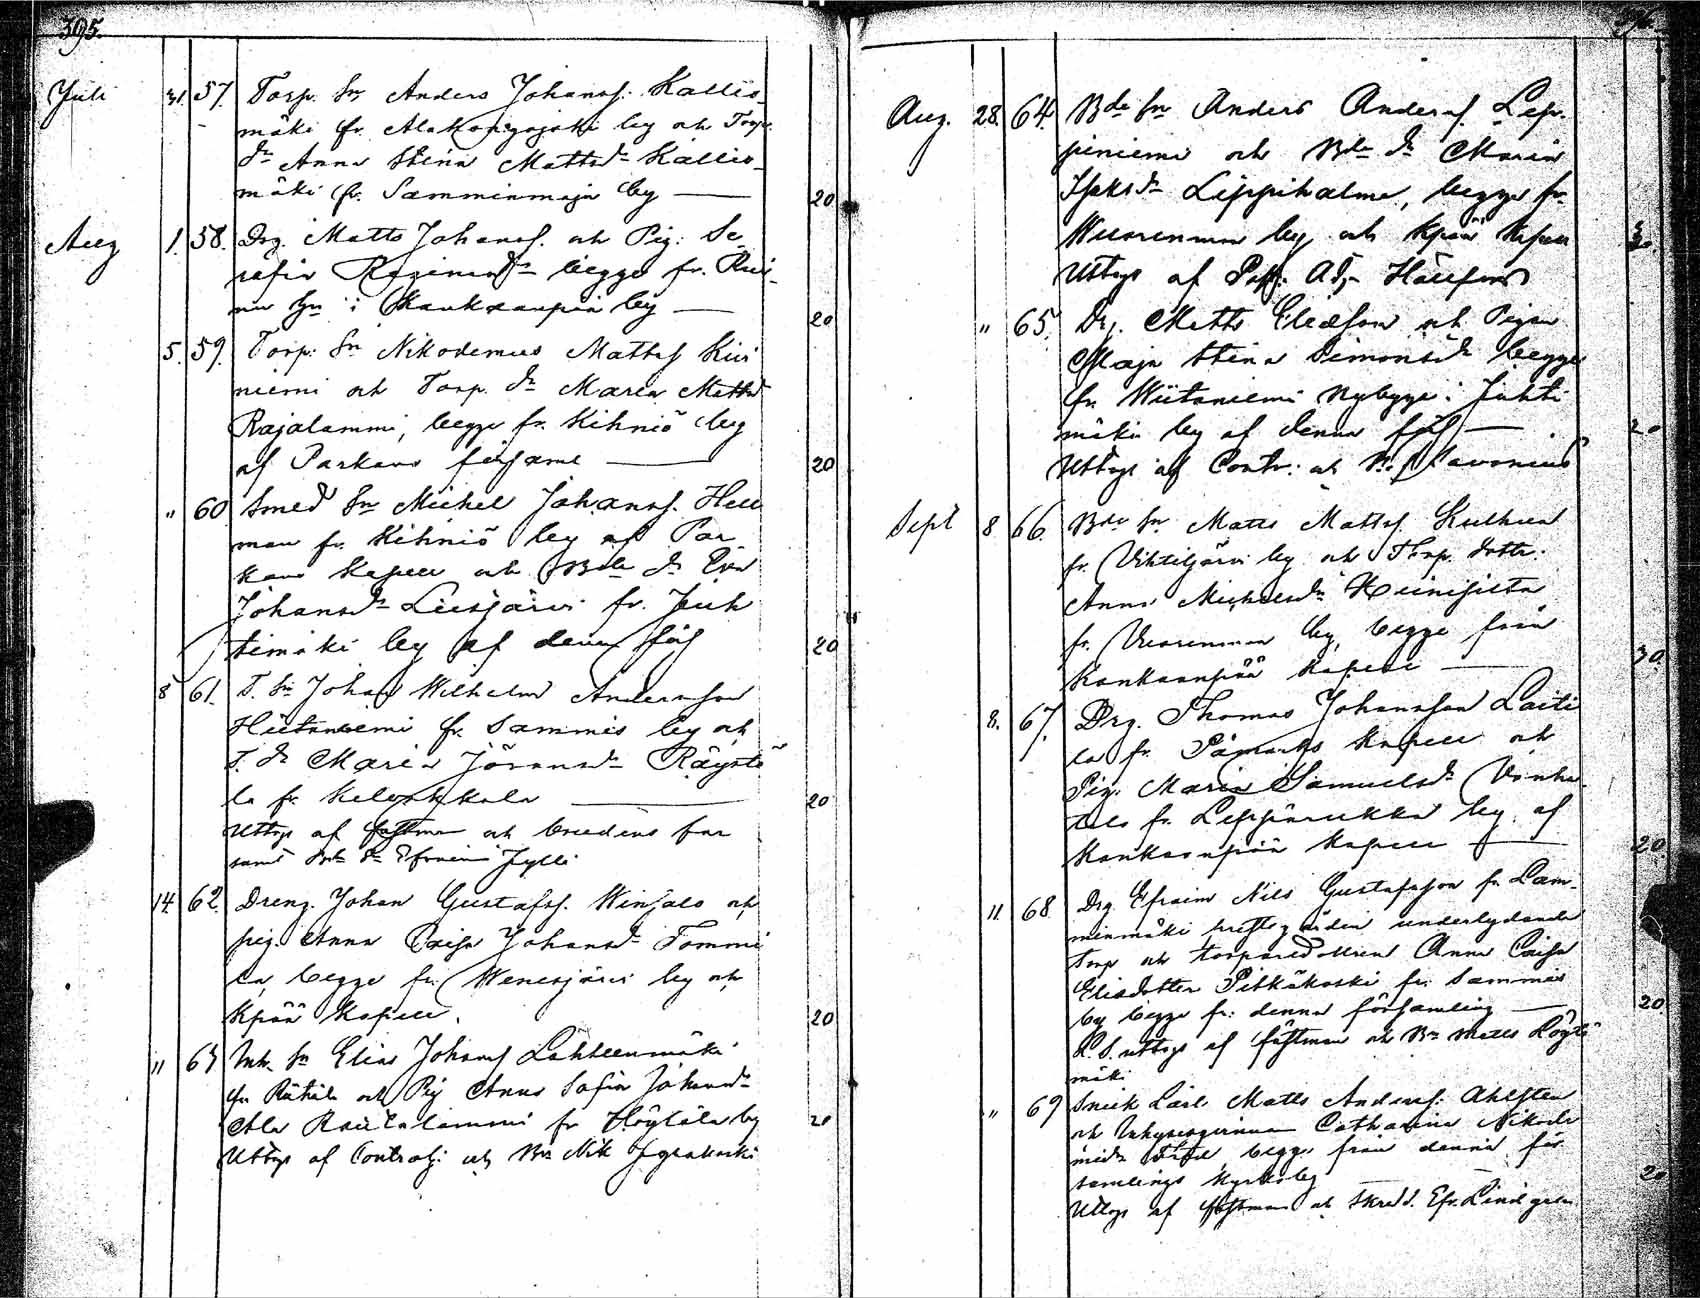 395.
Juli 31. 57. Torp. Sn Anders Johanss. Kallio-
mäki fr. by och Torp.
dr Anna Stina Mattsdr Kallio-
mäki fr. Samminmaja by — 20
Aug 1. 58. Drg. Matts Johanss. och Pig. Se-
rafia begge fr.
i Kankaanpää by — 20
5. 59. Torp. Sn Nikodemus Mattss Kivi
niemi och Torp. dr Maria Mattsdr
Rajalammi, begge fr. Kihniö by
af Parkano församl — 20
" 60 Smed Sn Michel Johanss. Hell
man fr. Kihniö by af Par
kano Kapell och Bde dr Eva
Johansdr Liesjärvi fr. Juh
timäki by af denna förs 20
8 61. T. Sn Johan Wilhelm Andersson
Hietaniemi fr. Sammis by och
T. dr Maria Jöransdr Röystö
la fr. Kelvakkala — 20
Uttogs af fästman och brudens far
samt Efraim Jylli
14. 62. Dreng. Johan Gustafss. Winsalo och
pig. Anna Caisa Johansdr Tommi
la, begge fr. Wenesjärvi by och
Kpää Kapell. 20
" 63 Inh. Sn Elias Johanss Lähteenmäki
fr. Rätiälä och Pig Anna Sofia Johansdr
Ala Rautalammi fr. by 20
Uttogs af och Bn Nik
396.
Aug. 28. 64. Bde Sn Anders Anderss. Lep-
piniemi och Bde dr Maria
Isaksdr Leppihalme, begge fr.
Wuorenmaa by och Kpää Kapell 30.
Uttogs af Ad. Hällfors
" 65. Drg. Matts Eliasson och Pigan
Maja Stina Simonsdr begge
fr. Wiitaniemi Nybygge i Juhti
mäki by af denna förs — 20
Uttogs af Contr. och
Sept 8 66. Bde Sn Matts Mattss.
fr. Vihteljärvi by och Torp. dottr.
Anna Michelsdr Heinisilta
fr. Vuorenmaa by, begge från
Kankaanpää Kapell — 30.
8. 67. Drg. Thomas Johansson Laiti
la fr. Påmarks Kapell och
Pig. Maria Samuelsdr Vanha
talo fr. Leppäruhka by af
Kankaanpää Kapell — 20.
11. 68 Drg. Efraim Nils Gustafsson fr. Lam-
minmäki prestgården underlydande
Torp och torparedottren Anna Caisa
Elisdotter Pitkäkoski fr. Sammis
by begge fr. denna församling — 20
L. S. uttogs af fästman och Bn Matts Löyti
mäki
" 69 Snick Lärl Matts Anderss. Ahlsten
och Inhysespigan Catharina Nikode
misdr begge från denna för
samlings Kyrkoby — 20
Uttogs af fästman och Skredd. Efr. Lindgren